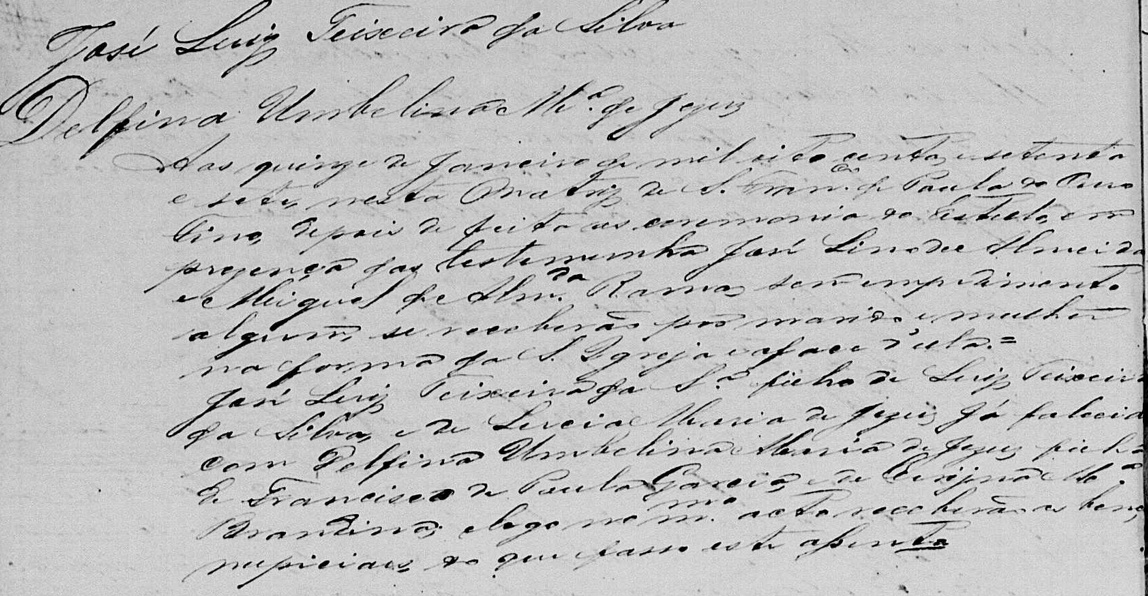 José Luiz Teixeira da Silva
Delfina Umbelina de M.ª de Jezus
Aos quinze de Janeiro de mil oito centos e setenta
e sete, nesta Matriz de S. Fran.co de Paula do Ouro
Fino, depois de feito as ceremonia do Estulo, em
prezença das testemunha José Lino de Almeida
e Miguel de Alm.da Ramos sem empedimento
algum, se receberão por marido e mulher
na forma da S. Igreja e aface d'ella =
José Luiz Teixeira da S.ª filho de Luiz Teixeira
da Silva, e de Lucia Maria de Jezus já falecid
com Delfina Umbelina Maria de Jezus filha
de Francisco de Paula Garcia, e de M.ª
Brandina, e logo no m.mo acto receberão as benç
nupiciaes do que fasso este assento